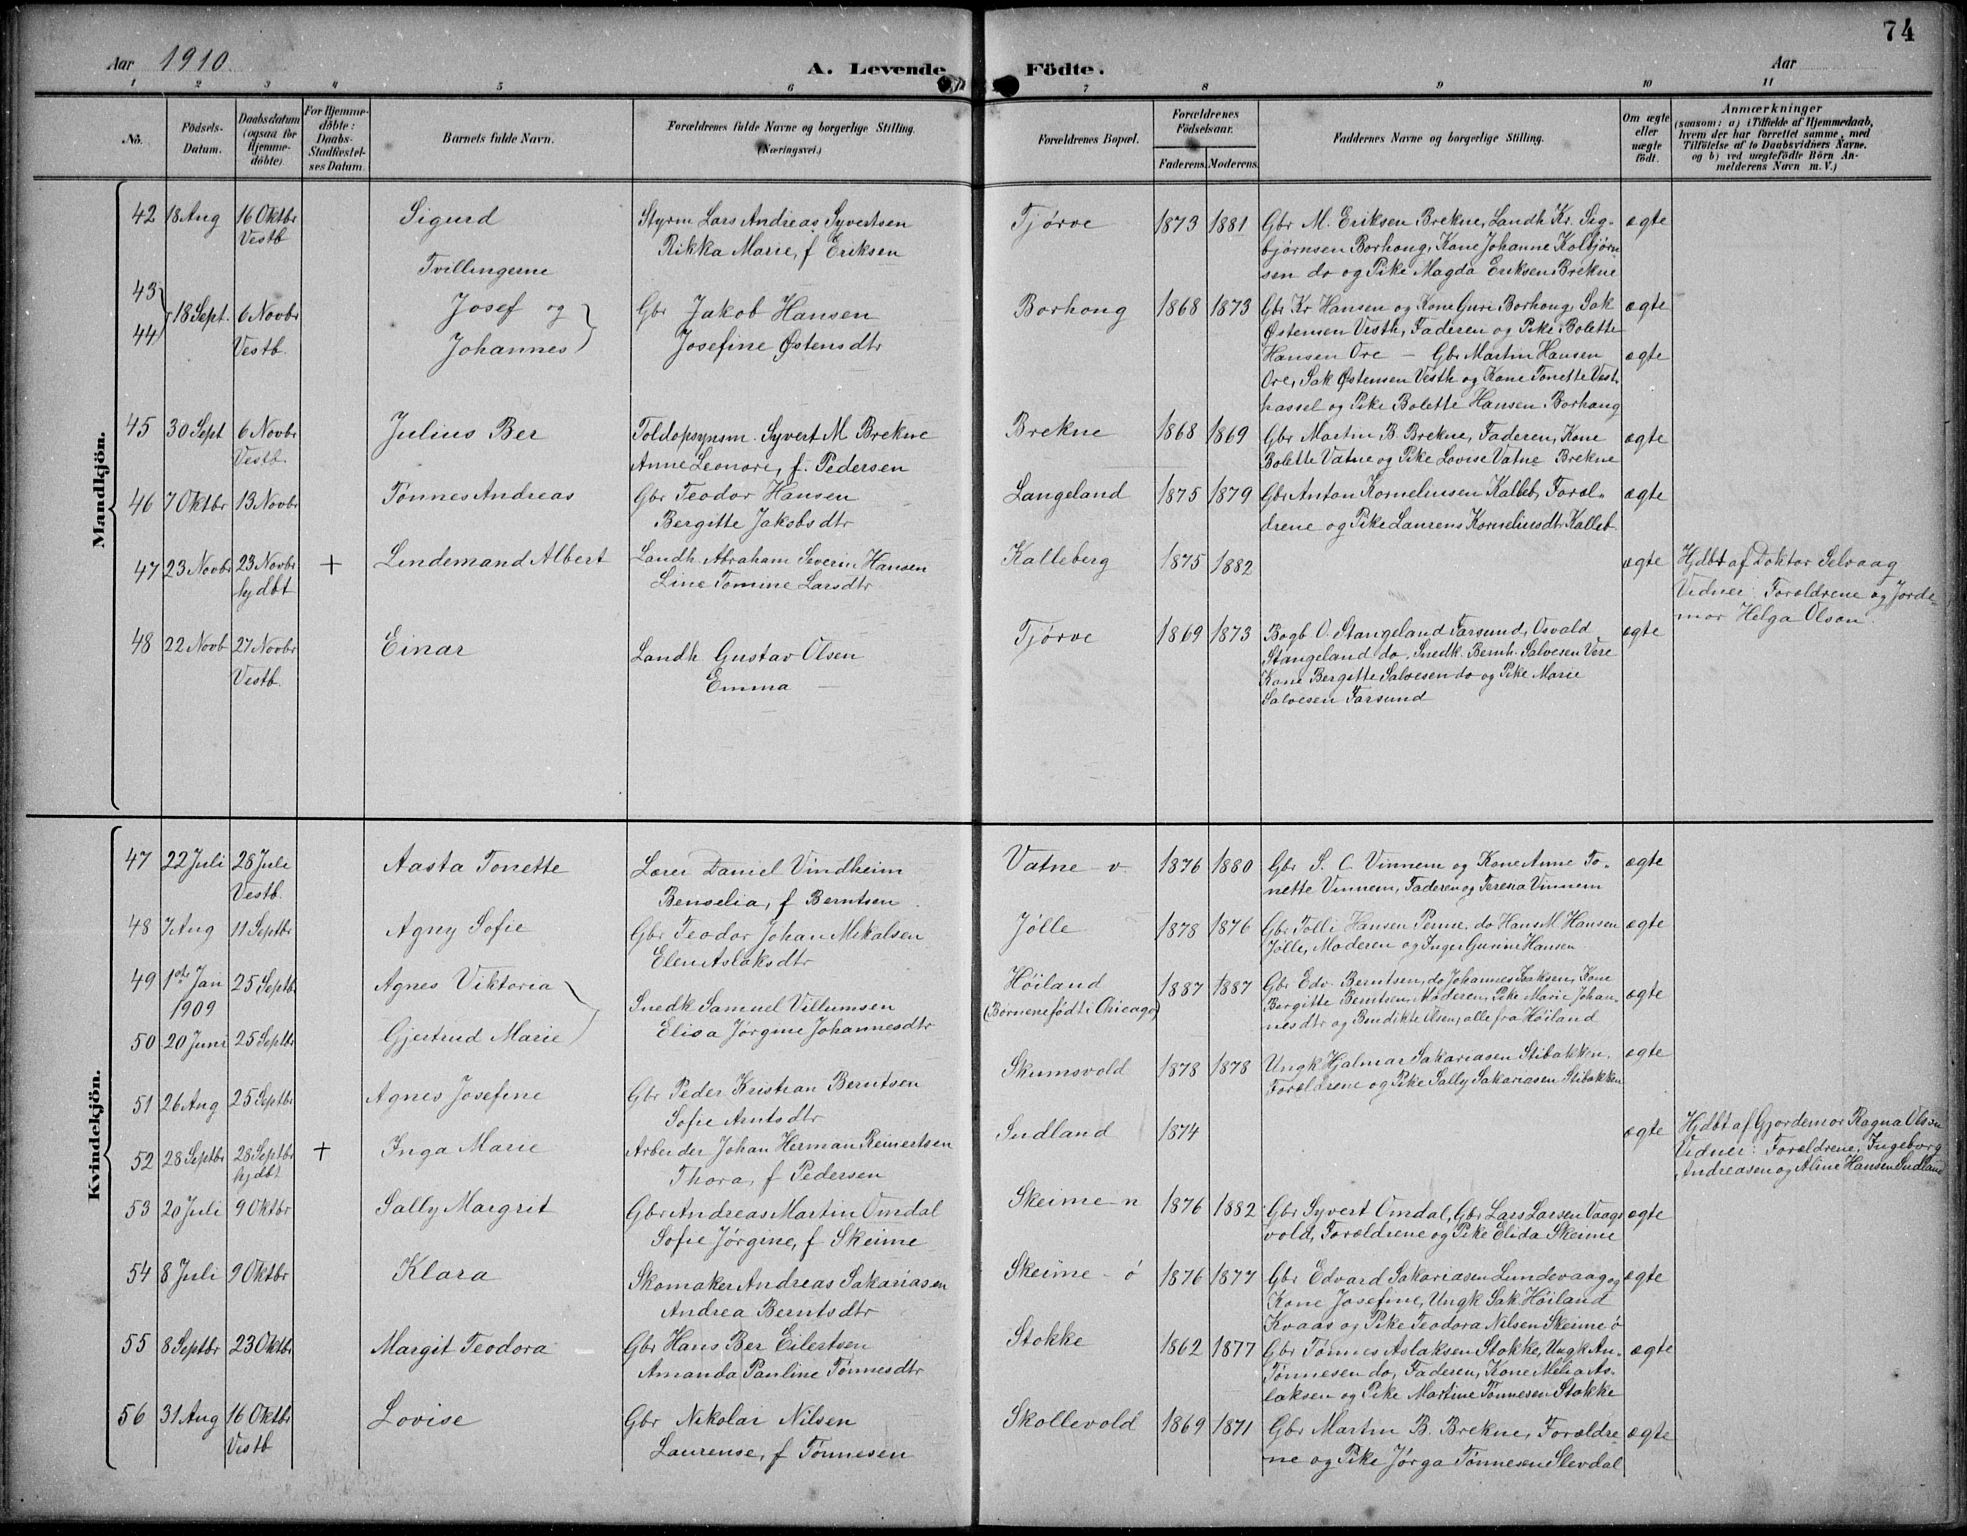 74
Aar 1910
A. Levende Födte.
Aar
1 2 3 4 5 6 7 8 9 10 11
No.
Födsels-Datum.
Daabsdatum (ogsaa for Hjemmedöbte)
For Hjemmedöbte: Daabs-Stadfæstelses Datum.
Barnets fulde Navn.
Forældrenes fulde Navne og borgerlige Stilling. (Næringsvei.)
Forældrenes Bopæl.
Forældrenes Födselsaar.
Faderens. Moderens.
Faddernes Navne og borgerlige Stilling.
Om ægte eller uægte födt.
Anmærkninger
(saasom: a) i Tilfælde af Hjemmedaab,
hvem der har forrettet samme, med
Tilföielse af to Daabsvidners Navne,
og b) ved uægtefödte Börn An-
melderens Navn m. V.)
Mandkjön.
42 18 Aug 16 Oktbr Sigurd Styrm Lars Andreas Syvertsen Tjørve 1873 1881 Gbr M. Eriksen Brekne, Landh Kr. Sig- ægte
Vestb Rikka Marie, f Eriksen bjørnsen Borhaug, Kone Johanne Kolbjørn
Tvillingerne sen do og Pike Magda Eriksen Brekne
43 18 Sept. 6 Novbr Josef og Gbr Jakob Hansen Borhaug 1868 1873 Gbr Kr Hansen og Kone Guri Borhaug, Sak ægte
44 Vestb. Johannes Josefine Østensdtr Østensen Vesth, Faderen og Pike Bolette
Hansen Ore – Gbr Martin Hansen ægte
Ore, Sak Østensen Vesth og Kone Tonette Vest-
hassel og Pike Bolette Hansen Borhaug
45 30 Sept 6 Novbr Julius Ber Toldopsynsm. Syvert M Brekne Brekne 1868 1869 Gbr Martin B. Brekne, Faderen, Kone ægte
Vestb. Anne Leonore, f. Pedersen Bolette Vatne og Pike Lovise Vatne Brekne
46 7 Oktbr 13 Novbr Tønnes Andreas Gbr Teodor Hansen Langeland 1875 1879 Gbr Anton Korneliusen Kalleb, Foræl- ægte
Bergitte Jakobsdtr drene og Pike Laurens Korneliusdtr Kalleb
47 23 Novbr 23 Novbr + Lindemand Albert Landh Abraham Severin Hansen Kalleberg 1875 1882 ægte Hjdbt af Doktor Selvaag
hjdbt Line Tomine Larsdtr Vidner: Forældrene og Jorde-
mor Helga Olson.
48 22 Novb 27 Novbr Einar Landh Gustav Olsen Tjørve 1869 1873 Bogb O. Stangeland Farsund, Osvald ægte
Vestb. Emma – Stangeland do, Snedk. Bernh. Salvesen Vere
Kone Bergitte Salvesen do og Pike Marie
Salvesen Farsund
Kvindekjön.
47 22 Juli 28 Juli Aasta Tonette Lærer Daniel Vindheim Vatne – v. 1876 1880 Gbr S. C. Vinnem og Kone Anne To- ægte
Vestb. Benselia, f Berntsen nette Vinnem, Faderen og Teresia Vinnem
48 7 Aug 11 Septbr Agny Sofie Gbr Teodor Johan Mikalsen Jølle 1878 1876 Gbr Tolli Hansen Penne, do Hans M Hansen ægte
Elen Aslaksdtr Jølle, Moderen og Inger Gurine Hansen
49 1ste Jan 25 Septbr Agnes Viktoria Høiland 1887 1887 Gbr Edv. Berntsen, do Johannes Isaksen, Kone ægte
1909 Snedk Samuel Villumsen (Børnene født i Chicago) Bergitte Berntsen, Moderen, Pike Marie Johan-
50 20 Juni 25 Septbr Gjertrud Marie Elisa Jørgine Johannesdtr nesdtr og Bendikte Olsen, alle fra Høiland
51 26 Aug 25 Septbr Agnes Josefine Gbr Peder Kristian Berntsen Skumsvold 1878 1878 Ungk Hjalmar Sakariasen Stibakken, ægte
Sofie Arntsdtr Forældrene og Pike Sally Sakariasen Stibakken
52 28 Septbr 28 Septbr + Inga Marie Arbeider Johan Herman Reinertsen Sudland 1874 ægte Hjdbt af Gjordemor Ragna Olson
hjdbt Thora, f Pedersen Vidner: Forældrene, Ingeborg
Andreasen og Aline Hansen Sudland
53 20 Juli 9 Oktbr Sally Margrit Gbr Andreas Martin Omdal Skeime n 1876 1882 Gbr Syvert Omdal, Gbr Lars Larsen Vaags ægte
Sofie Jørgine, f Skeime vold, Forældrene og Pike Elida Skeime
54 8 Juli 9 Oktbr Klara Skomaker Andreas Sakariasen Skeime – ø 1876 1877 Gbr Edvard Sakariasen Lundevaag og ægte
Andrea Berntsdtr Kone Josefine, Ungk Sak Høiland
Kvaas og Pike Teodora Nilsen Skeime ø
55 8 Septbr 23 Oktbr Margit Teodora Gbr Hans Ber Eilertsen Stokke 1862 1877 Gbr Tønnes Aslaksen Stokke, Ungk An. ægte
Amanda Pauline Tønnesdtr Tønnesen do, Faderen, Kone Melia As-
laksen og Pike Martine Tønnesen Stokke
56 31 Aug 16 Oktbr Lovise Gbr Nikolai Nilsen Skollevold 1869 1871 Gbr Martin B. Brekne, Forældre ægte
Vestb Laurense, f Tønnesen ne og Pike Jørga Tønnesen Slevdal